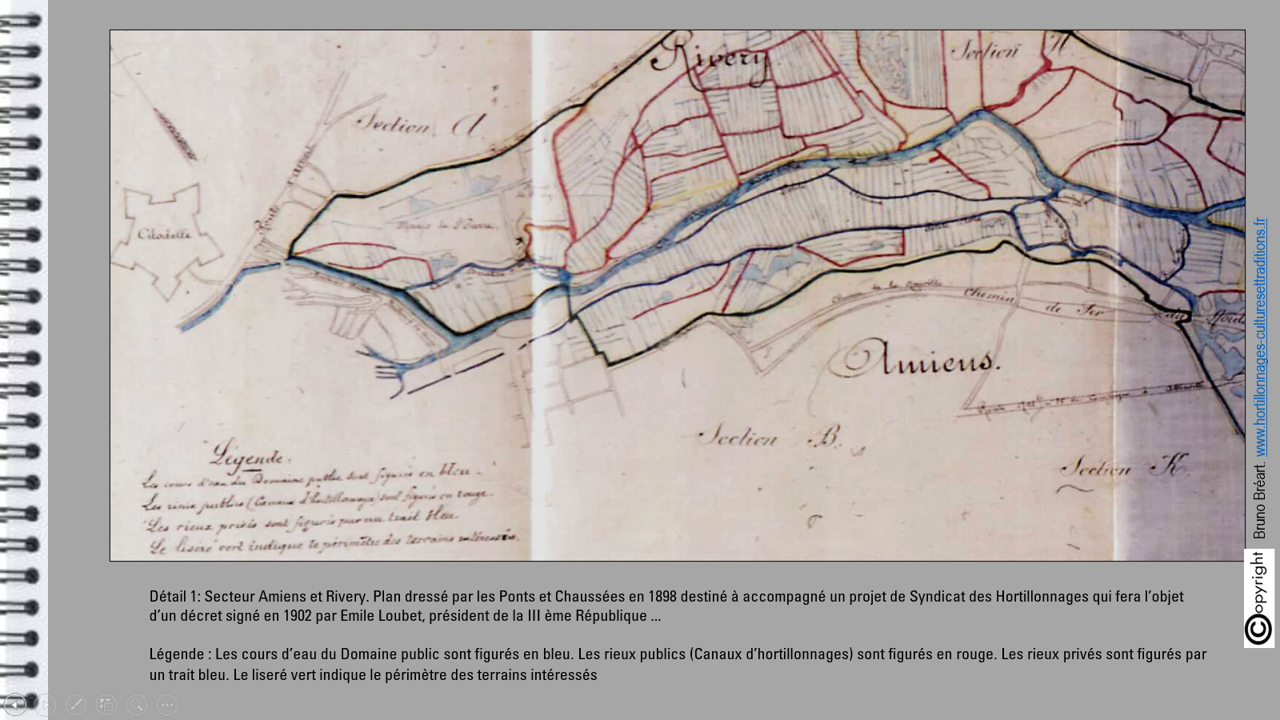 Rivery
Section
Section A
Citadelle
Route
Chemin
de Fer
du Nord
Amiens.
Section B.
Section K.
Légende.
Les cours d'eau du Domaine public sont figurés en bleu.
Les rieux publics (Canaux d'hortillonnages) sont figurés en rouge.
Les rieux privés sont figurés par un trait bleu.
Le liseré vert indique le périmètre des terrains intéressés.
Détail 1: Secteur Amiens et Rivery. Plan dressé par les Ponts et Chaussées en 1898 destiné à accompagné un projet de Syndicat des Hortillonnages qui fera l'objet
d'un décret signé en 1902 par Emile Loubet, président de la III ème République ...
Légende : Les cours d'eau du Domaine public sont figurés en bleu. Les rieux publics (Canaux d'hortillonnages) sont figurés en rouge. Les rieux privés sont figurés par
un trait bleu. Le liseré vert indique le périmètre des terrains intéressés
©opyright Bruno Bréart. www.hortillonnages-culturesettraditions.fr